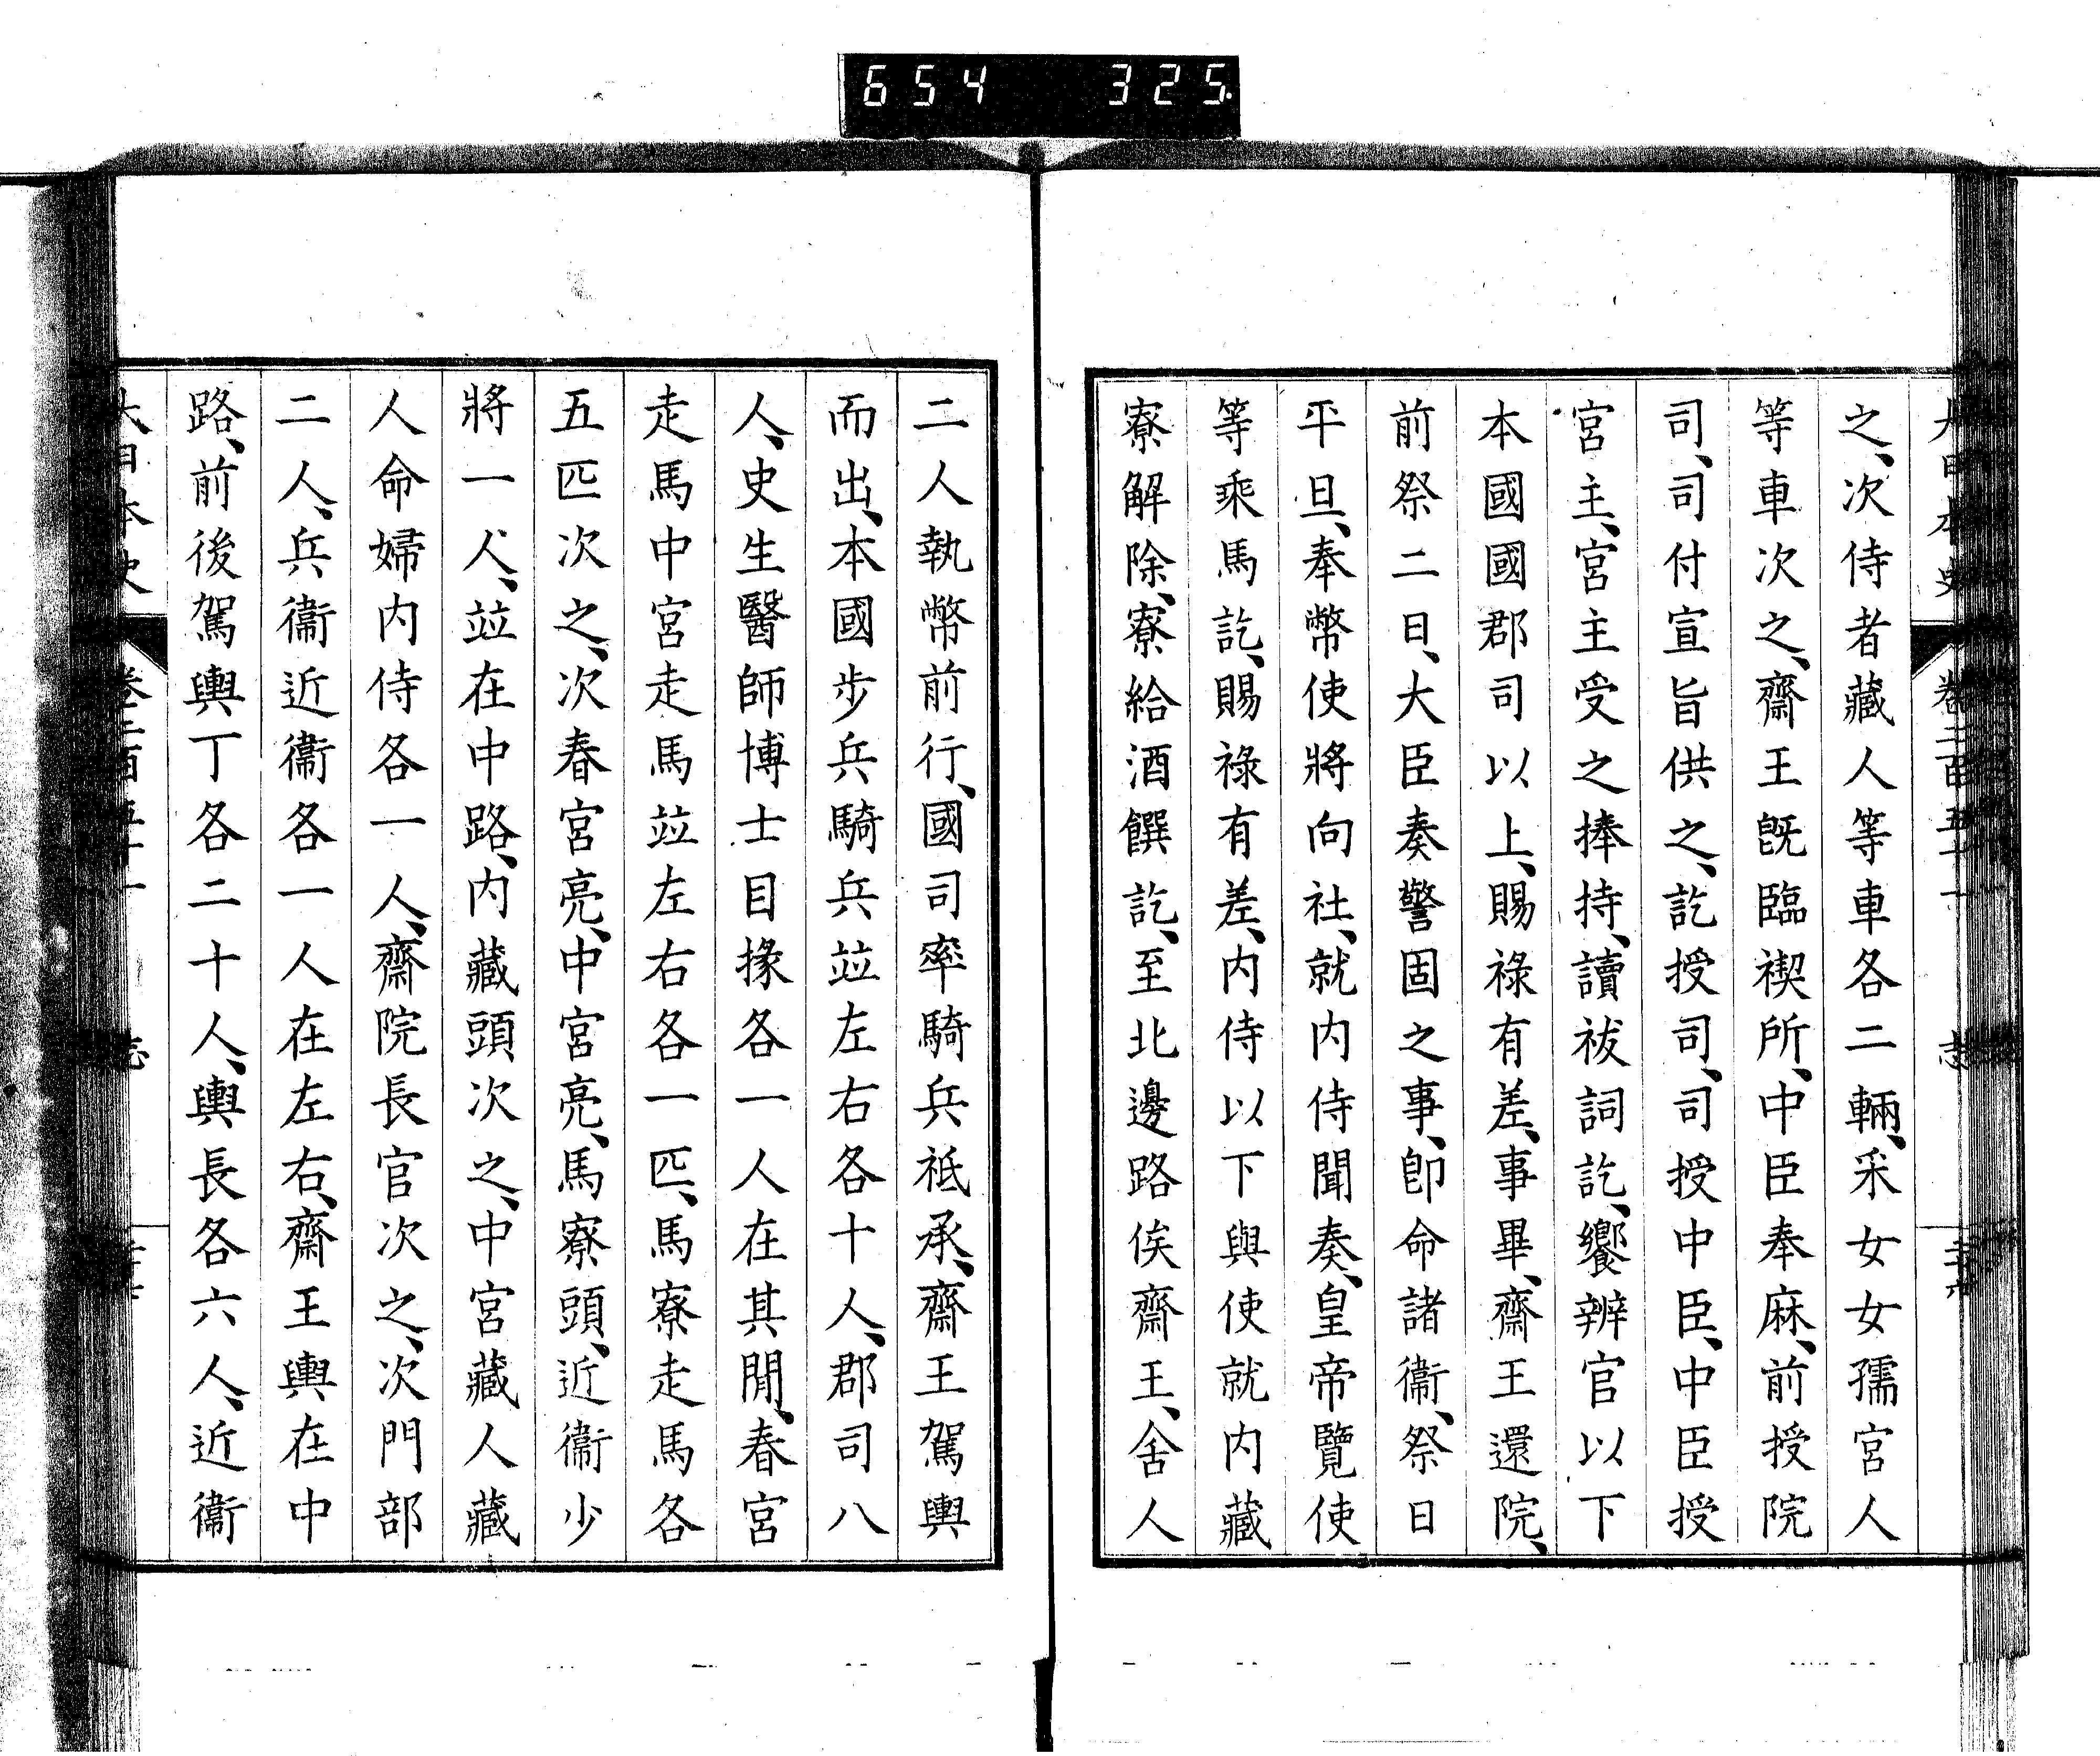 654 325
之、次侍者藏人等車各二輛、采女女孺宮人
等車次之、齋王既臨禊所、中臣奉麻、前授院
司、司付宣旨供之、訖授司、司授中臣、中臣授
宮主、宮主受之捧持、讀祓詞訖、饗辨官以下
本國國郡司以上、賜祿有差、事畢、齋王還院、
前祭二日、大臣奏警固之事、卽命諸衞、祭日
平旦、奉幣使將向社、就内侍聞奏、皇帝覽使
等乘馬訖、賜祿有差、内侍以下與使就内藏
寮解除、寮給酒饌訖、至北邊路俟齋王、舍人
二人執幣前行、國司率騎兵祗承、齋王駕輿
而出、本國步兵騎兵竝左右各十人、郡司八
人、史生醫師博士目掾各一人在其閒、春宮
走馬中宮走馬竝左右各一匹、馬寮走馬各
五匹次之、次春宮亮、中宮亮、馬寮頭、近衞少
將一人、竝在中路、内藏頭次之、中宮藏人藏
人命婦内侍各一人、齋院長官次之、次門部
二人、兵衞近衞各一人在左右、齋王輿在中
路、前後駕輿丁各二十人、輿長各六人、近衞